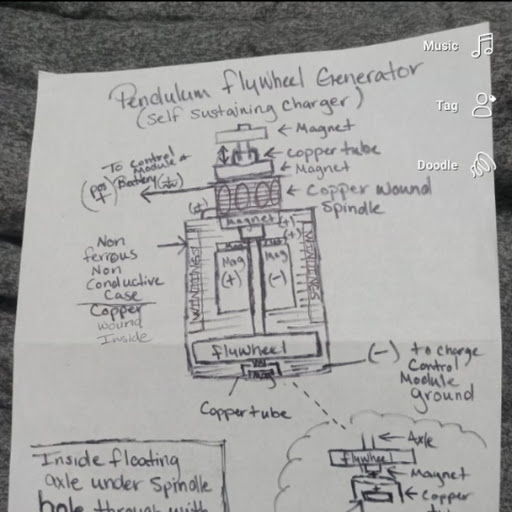 Music
Tag
Doodle
Pendulum flywheel Generator
(self sustaining charger)
Magnet
copper tube
Magnet
To control
Module &
Battery
(pos +)
copper wound
Spindle
(+)
Magnet (+)
(+)
Non
ferrous
Non
Conductive
Case
Copper
wound
Inside
WINDINGS
Mag
(+)
Mag
(-)
WINDINGS
flywheel
(-) to charge
Control
Module
ground
Copper tube
Axle
flywheel
Magnet
Copper
Inside floating
axle under Spindle
hole through with